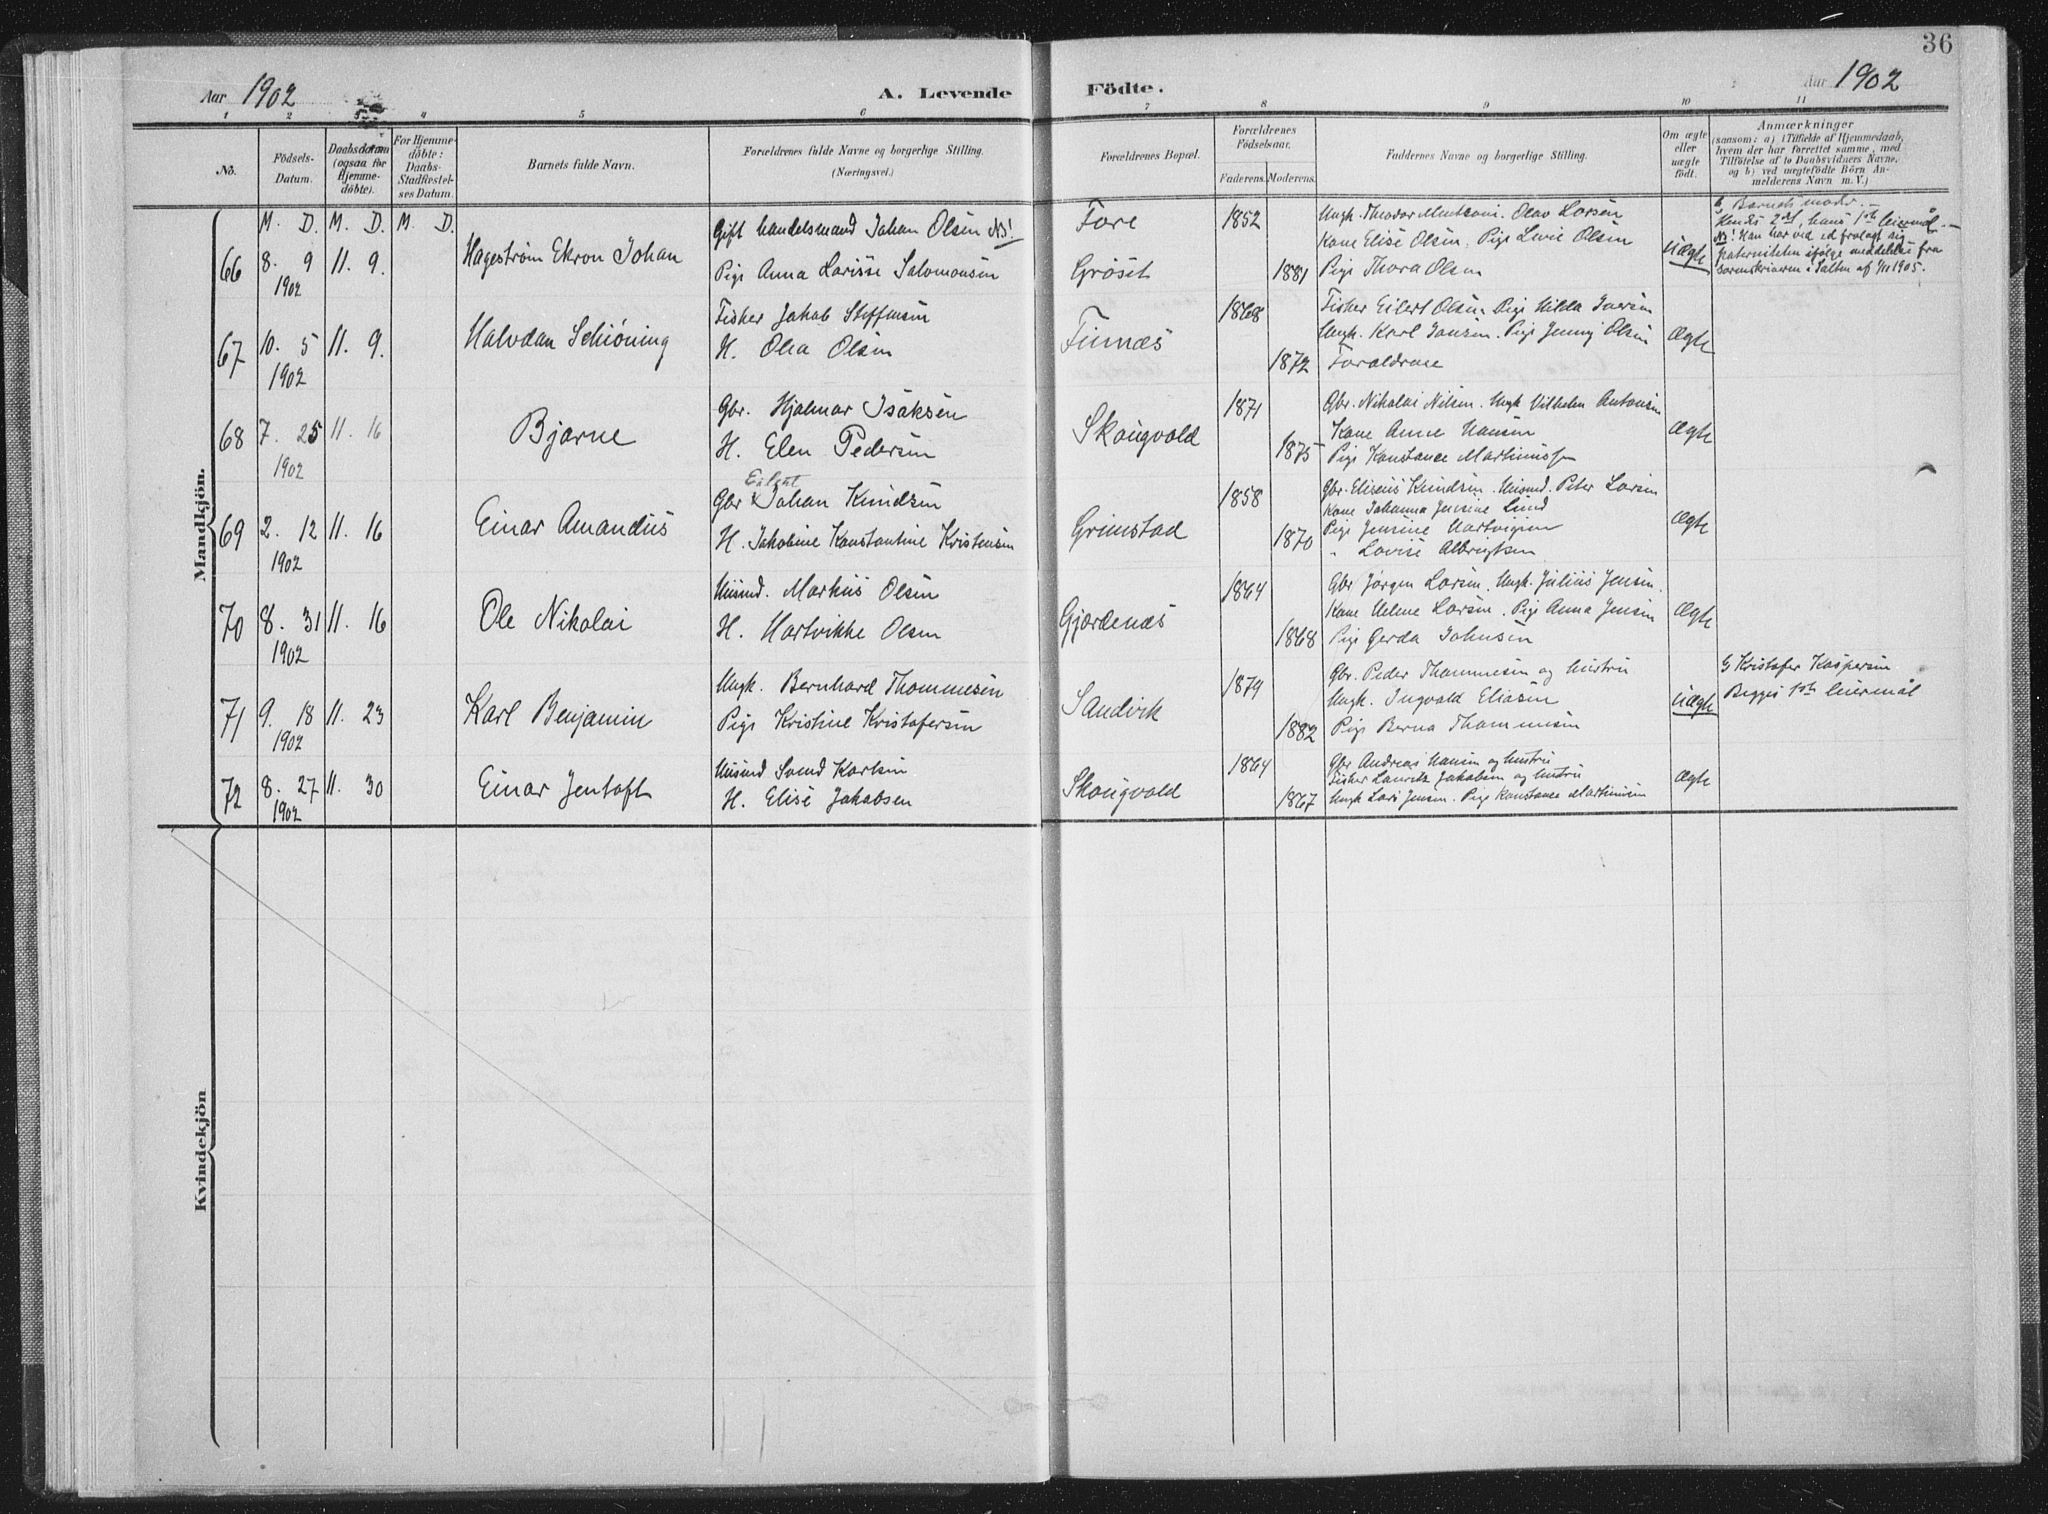 36
Aar 1902
A. Levende
Födte.
Aar 1902
1 2 3 4 5 6 7 8 9 10 11
No.
Födsels-
Datum.
Daabsdatum
(ogsaa for
Hjemme-
döbte).
For Hjemme-
döbte:
Daabs-
Stadfæstel-
ses Datum.
Barnets fulde Navn.
Forældrenes fulde Navne og borgerlige Stilling.
(Næringsvei.)
Forældrenes Bopæl.
Forældrenes
Födselsaar.
Faderens. Moderens.
Faddernes Navne og borgerlige Stilling.
Om ægte
eller
uægte
födt.
Anmærkninger
(saasom: a) i Tilfælde af Hjemmedaab,
hvem der har forrettet samme, med
Tilföielse af to Daabsvidners Navne,
og b) ved uægtefödte Börn An-
melderens Navn m. V.)
Mandkjön.
M. D. M. D. M. D.
66 8. 9 11. 9.
1902
Hagestrøm Ekron Johan
Gift handelsmand Johan Olsen NB!
Pige Anna Larisse Salomonsen
Fore
Grøset
1852
1881
Ungk. Theodor Mentzoni. Olav Larsen
Kone Elise Olsen. Pige Lovise Olsen
Pige Thora Olsen
Uægte
b, Barnets moder. –
Hendes 2det, hans 1ste leiermål. –
NB! Han har ved ed fralagt sig
paterniteten ifølge meddelelse fra
sorenskriveren i Salten af 1905.
67 10. 5 11. 9.
1902
Halvdan Schiöning
Fisker Jakob Steffensen
H. Olea Olsen
Finnæs
1868
1872
Fisker Eilert Olsen. Pige Hilda Iversen
Ungk. Karl Jansen. Pige Jenny Olsen
Forældrene
Ægte
68 7. 25 11. 16
1902
Bjarne
Gbr. Hjalmar Isaksen
H. Elen Pedersen
Skougvold
1871
1875
Gbr. Nikolai Nilsen. Ungk Vilhelm Antonsen
Kone Anne Hansen
Pige Konstance Martinussen
Ægte
69 2. 12 11. 16
1902
Einar Amandus
Gbr Johan Knudsen
H. Jakobine Konstantine Kristensen
Grimstad
1858
1870
Gbr. Eliseus Knudsen. Husmd. Peter Larsen
Kone Johanna Jensine Lund
Pige Jensine Hartvigsen
" Lovise Albrigtsen
Ægte
70 8. 31 11. 16
1902
Ole Nikolai
Husmd. Markus Olsen
H. Hartvikke Olsen
Gjærdenæs
1864
1868
Gbr Jørgen Larsen. Ungk. Julius Jensen.
Kone Helene Larsen. Pige Anna Jensen
Pige Gerda Johnsen
Ægte
71 9. 18 11. 23
1902
Karl Benjamin
Ungk. Bernhard Thommesen
Pige Kristine Kristofersen
Sandvik
1879
1882
Gbr. Peder Thommesen og hustru
Ungk. Ingvald Eliasen
Pige Berna Thommesen
Uægte
G Kristofer Kaspersen
Begges 1ste leiermål
72 8. 27 11. 30
1902
Einar Jentoft
Husmd Svend Karlsen
H. Elise Jakobsen
Skougvold
1864
1867
Gbr Andreas Hansen og hustru
Fisker Lauritz Jakobsen og hustru
Ungk Lars Jensen. Pige Konstance Martinusen
Ægte
Kvindekjön